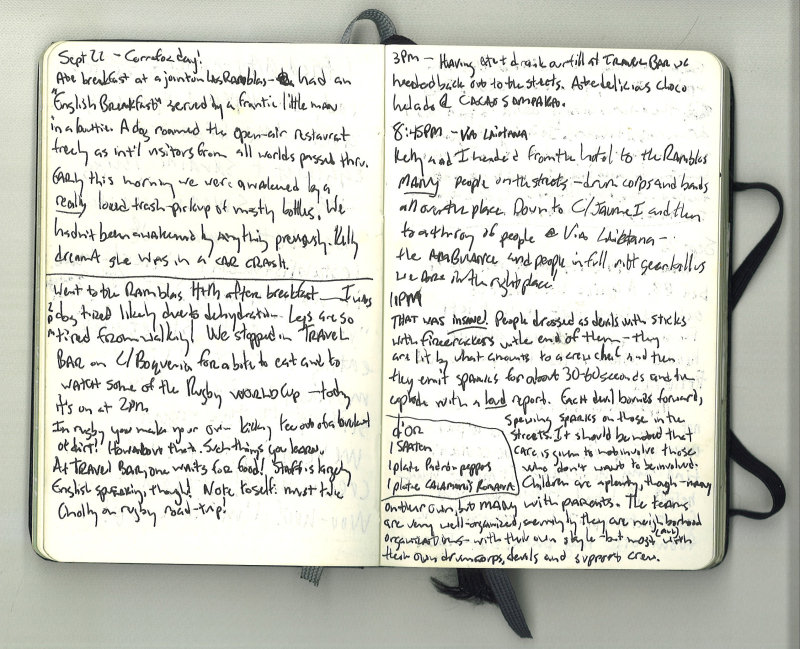 Sept 22 - Correfoc day!
Ate breakfast at a joint on Las Ramblas - had an
"English Breakfast" served by a frantic little man
in a bowtie. A dog roamed the open-air restaurat
freely as int'l visitors from all worlds passed thru.
Early this morning we were awakened by a
really loud trash-pickup of mostly bottles. We
hadn't been awakened by anything previously. Kelly
dreamt she was in a CAR CRASH.
Went to the Ramblas H+M after breakfast I was
dog tired likely due to dehydration. Legs are so
tired from walking! We stopped in TRAVEL
BAR on C/Boqueria for a bite to eat and to
WATCH some of the Rugby WORLD CUP - today
it's on at 2pm
In rugby you make your own kicking tee out of a bucket
of dirt! How about that. Such things you learn.
At TRAVEL BAR, one waits for food! Staff is largely
English speaking, though! Note to self: must take
Cholly on rugby road-trip!
3PM - Having eat & drank our fill at TRAVEL BAR we
headed back out to the streets. Ate delicious choco
helado @ CACAO SAMPAKA.
8:45PM - VIA LAIETANA
Kelly and I headed from the hotel to the Ramblas
MANY people on the streets - drum corps and bands
all over the place. Down to C/Jaume I and then
to a throng of people @ Via Laietana -
the AMBULANCE and people in full riot gear tell us
we are in the "right place"
10PM
THAT WAS insane! People dressed as devils with sticks
with firecrackers on the end of them - they
are lit by what amounts to a crew chief and then
they emit sparks for about 30-60 seconds and then
explode with a loud report. Each devil bounds forward,
spewing sparks on those in the
streets. It should be noted that
care is given to not involve those
who don't want to be involved.
Children are aplenty, though - many
D'OR
1 SAATEN
1 plate Padron peppers
1 plate CALAMARIS ROMANA
on their own, but MANY with parents. The teams
are very well-organized, seemingly they are neighborhood
organizations - with their own style - but most (all) with
their own drum corps, devils and support crew.